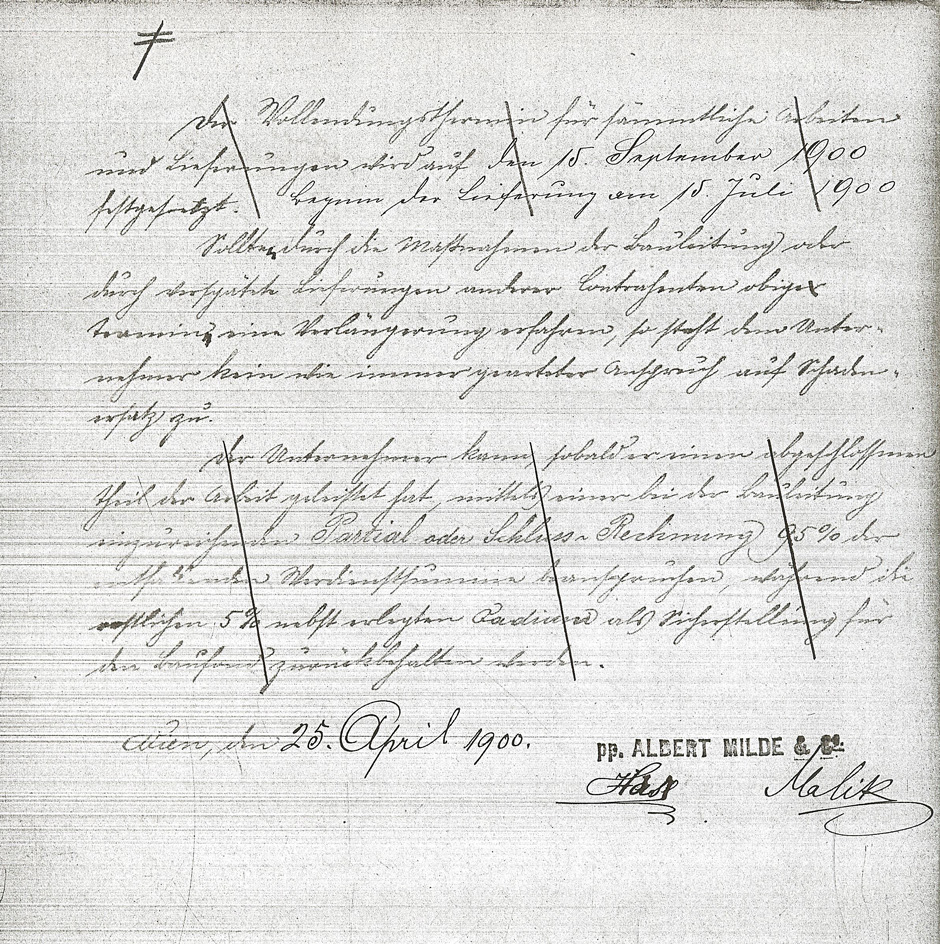 Der Vollendungsthermin für sämmtliche Arbeiten
und Lieferungen wird auf den 15. September 1900
festgesetzt. Beginn der Lieferung am 15. Juli 1900
Sollten durch die Maßnahmen der Bauleitung oder
durch verspätete Lieferungen anderer Contrahenten obige
Termine eine Verlängerung erfahren, so steht dem Unter-
nehmer kein wie immer gearteter Anspruch auf Schaden-
ersatz zu.
Der Unternehmer kann, sobald er einen abgeschlossenen
Theil der Arbeit geleistet hat, mittels einer bei der Bauleitung
einzureichenden Partial oder Schluss-Rechnung 95% der
Verdienstsumme beanspruchen, während die
restlichen 5% nebst erlegten Vadiums als Sicherstellung für
den Baufond zurückbehalten werden.
Wien, den 25. April 1900.
pp. ALBERT MILDE & Co.
Malik